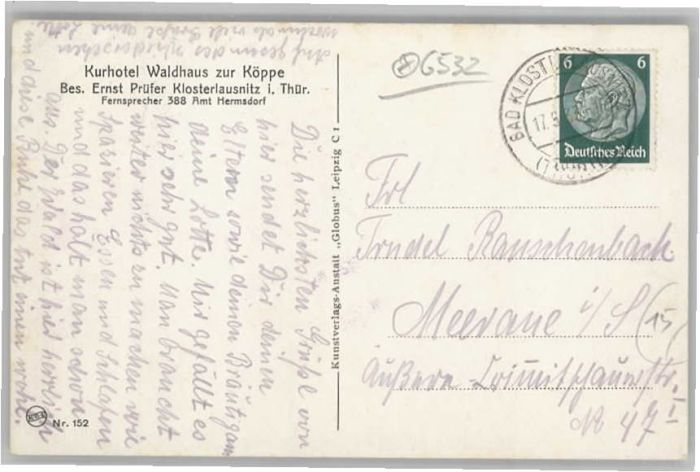 Kurhotel Waldhaus zur Köppe
Bes. Ernst Prüfer Klosterlausnitz i. Thür.
Fernsprecher 388 Amt Hermsdorf
Die herzlichsten Grüße von
hier sendet Dir deinen
Eltern sowie deinen Bräutigam
deine Lotte. Mir gefällt es
hier sehr gut. Man braucht
weiter nichts zu machen wie
spazieren Essen und Schlafen
und das halt man schon
aus. Der Wald ist hier herrlich
und diese Ruhe das tut einen wohl.
Auf gesundes Wiedersehen
nochmals viele Grüße deine Lotte.
Nr. 152
Kunstverlags-Anstalt „Globus" Leipzig C 1
06532
BAD KLOST
17.
6 6
Deutsches Reich
Frl
Trudel Rauschenbach
Meerane i/S (15)
Äußere Crimmitschauerstr.
No 47 I